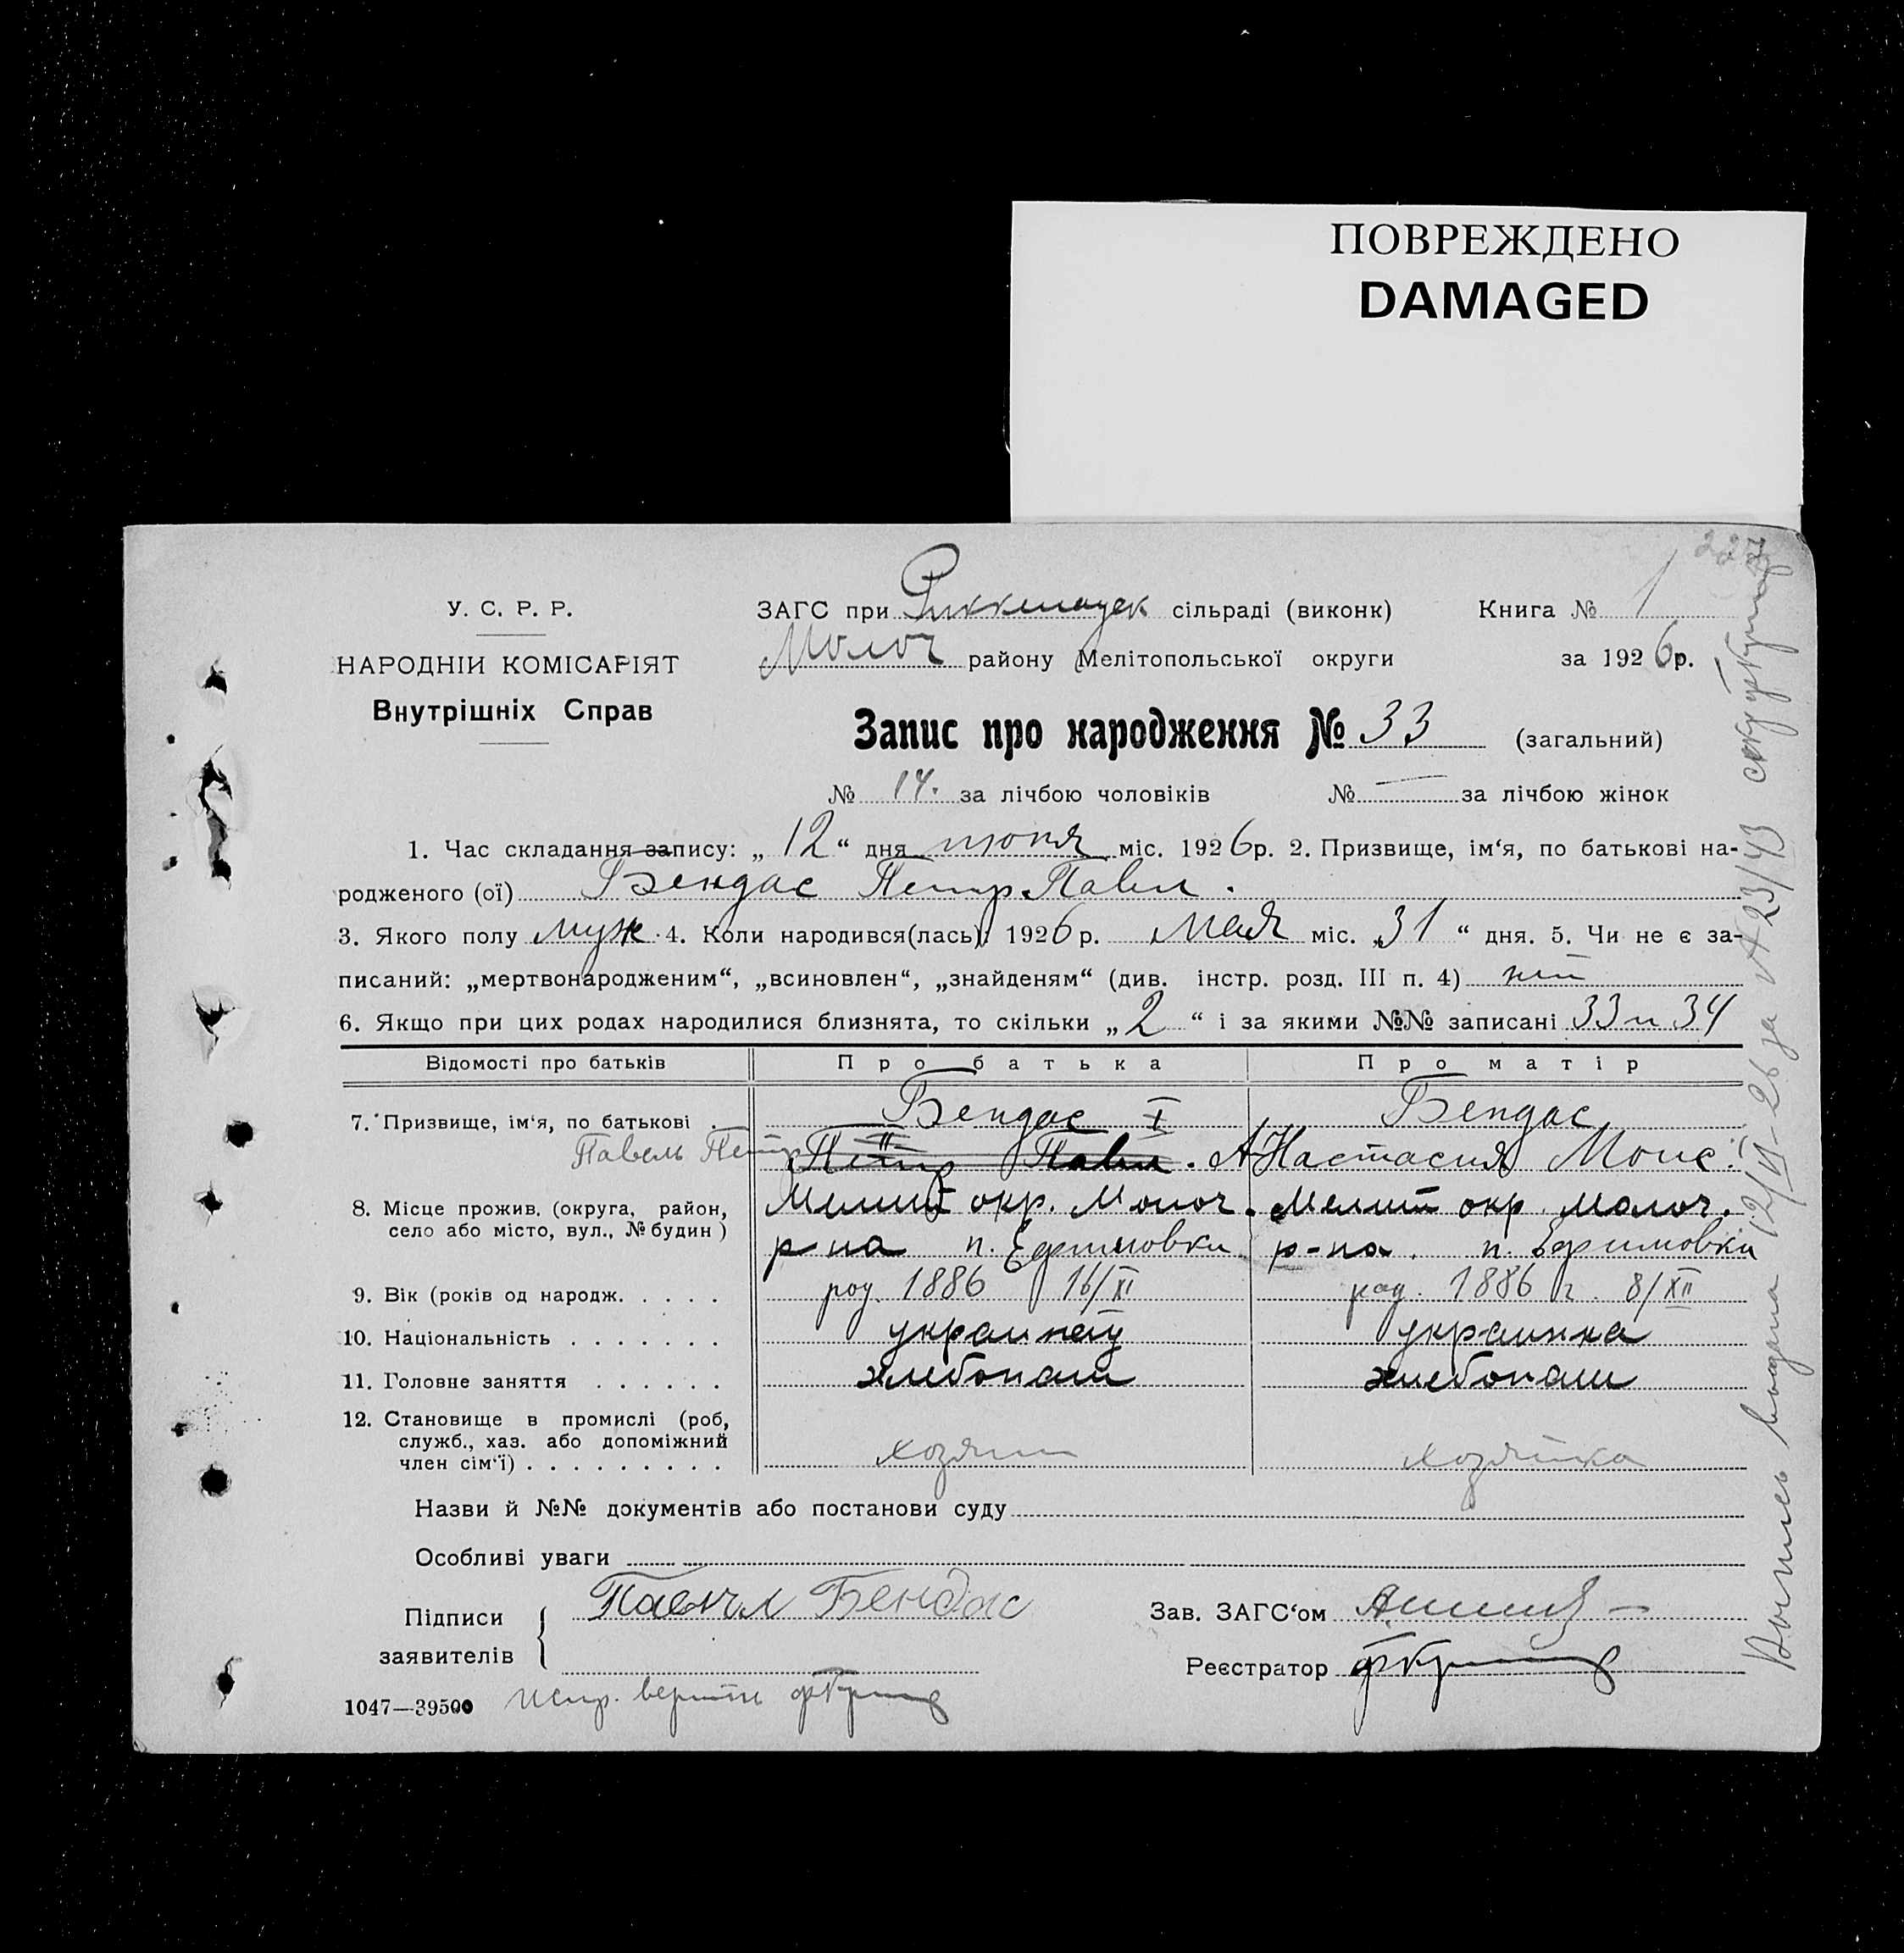 ПОВРЕЖДЕНО
DAMAGED
У. С. Р. Р.
НАРОДНІЙ КОМІСАРІЯТ
Внутрішніх Справ
ЗАГС при Риккенауск сільраді (виконк)
Молоч району Мелітопольської округи
Книга № 1
за 1926р.
Запис про народження № 33 (загальний)
№ 14. за лічбою чоловіків № — за лічбою жінок
1. Час складання запису: „12“ дня июня міс. 1926р. 2. Призвище, ім‘я, по батькові на-
родженого (ої) Бендас Петр Павл.
3. Якого полу муж 4. Коли народився(лась): 1926р. мая міс. „31“ дня. 5. Чи не є за-
писаний: „мертвонародженим“, „всиновлен“, „знайденям“ (див. інстр. розд. III п. 4) нет
6. Якщо при цих родах народилися близнята, то скільки „2“ і за якими №№ записані 33 и 34
Відомості про батьків Про батька Про матір
7. Призвище, ім‘я, по батькові . Бендас I Бендас
Павель Петр Петр II Павл. Анастасия Моис.
8. Місце прожив. (округа, район, Мелит окр. Молоч. Мелит окр. Молоч.
село або місто, вул., № будин) р-на п. Ефимовки р-на. п. Ефимовки
9. Вік (років од народж. . . . . род. 1886 16/XI род. 1886 г. 8/XII
10. Національність . . . . . . . украинец украинка
11. Головне заняття . . . . . . хлебопаш хлебопаш
12. Становище в промислі (роб,
служб., хаз. або допоміжний хозяин хозяйка
член сім‘ї) . . . . . . . . .
Назви й №№ документів або постанови суду
Особливі уваги
Підписи заявителів { Павел Бендас
Зав. ЗАГС‘ом
Реєстратор
1047—39500 испр. верить
Выпись выдана 12/VI-26 за № 23/43